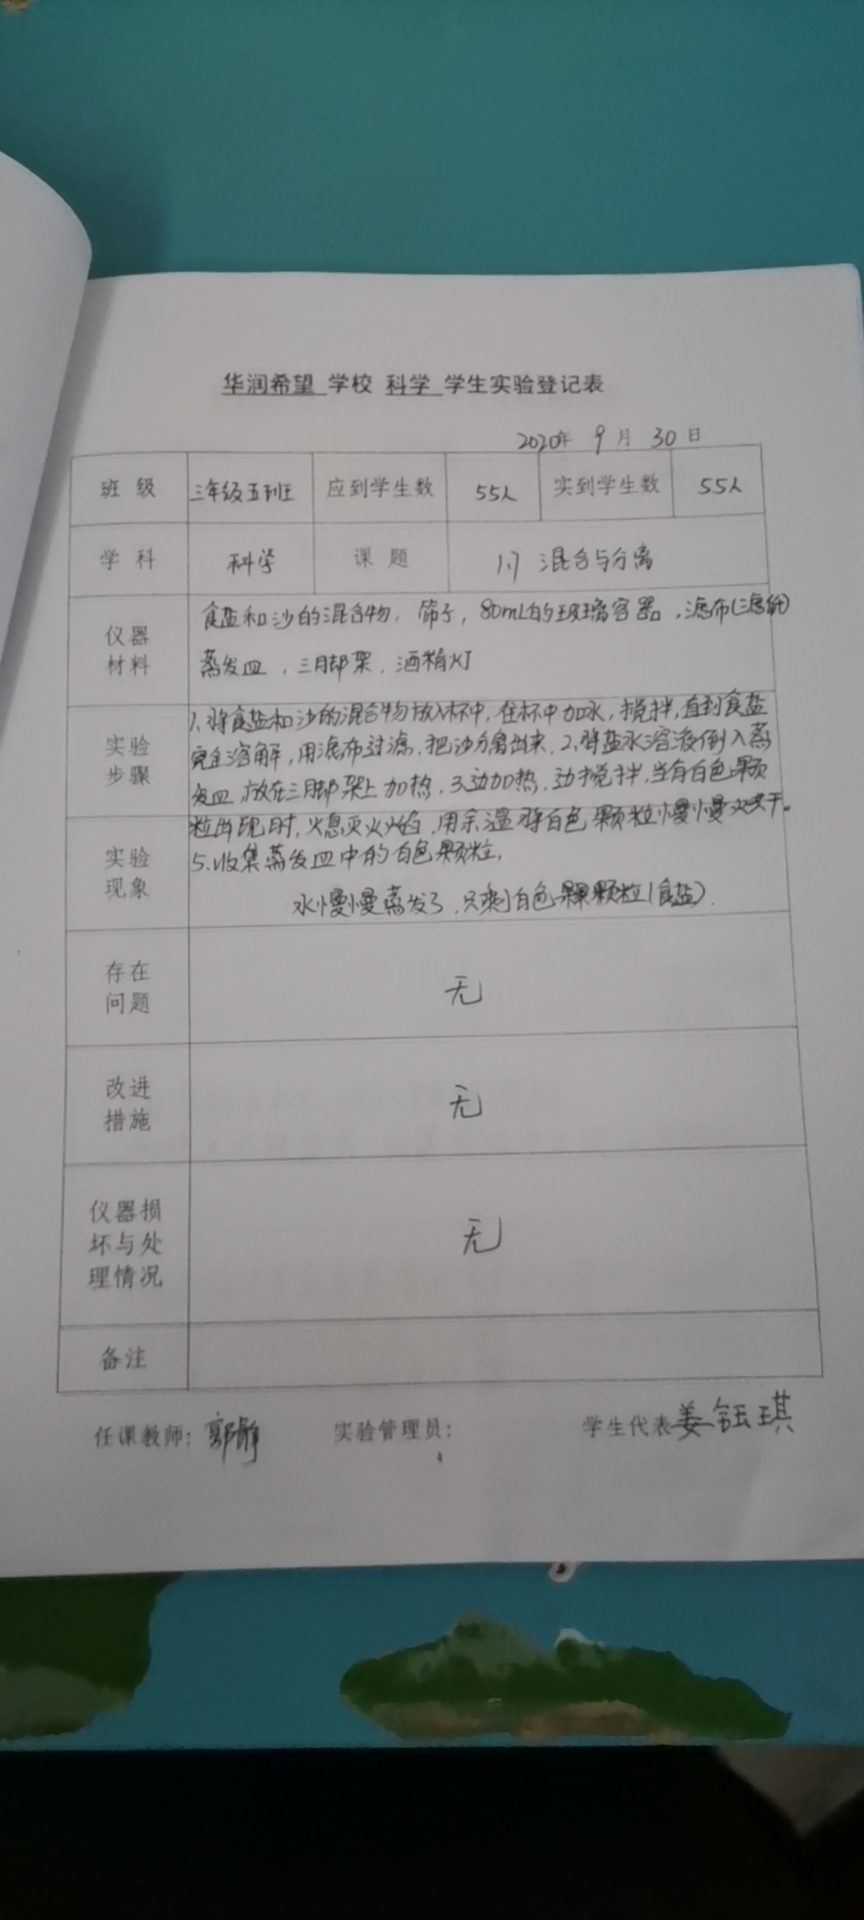 华润希望 学校 科学 学生实验登记表
2020年 9 月 30 日
班级 三年级五班 应到学生数 55人 实到学生数 55人
学科 科学 课题 1.7 混合与分离
仪器材料
食盐和沙的混合物，筛子，80mL的玻璃容器。，滤布(滤纸)
蒸发皿，三脚架，酒精灯
实验步骤
1、将食盐和沙的混合物放入杯中，在杯中加水，搅拌，直到食盐
完全溶解，用滤布过滤，把沙分离出来，2、将盐水溶液倒入蒸
发皿，放在三脚架上加热，3、边加热，边搅拌，当有白色颗
粒出现时，熄灭火焰，用余温将白色颗粒慢慢烘干。
5、收集蒸发皿中的白色颗粒，
实验现象
水慢慢蒸发了，只剩白色颗粒(食盐)．
存在问题
无
改进措施
无
仪器损坏与处理情况
无
备注
任课教师：郭静 实验管理员： 学生代表 姜钰琪